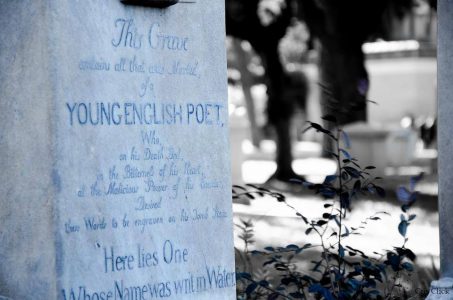 This Grave
contains all that was Mortal,
of a
YOUNG ENGLISH POET,
Who,
on his Death Bed,
in the Bitterness of his Heart,
at the Malicious Power of his Enemies,
Desired
these Words to be engraven on his Tomb Stone
"Here lies One
Whose Name was writ in Water.